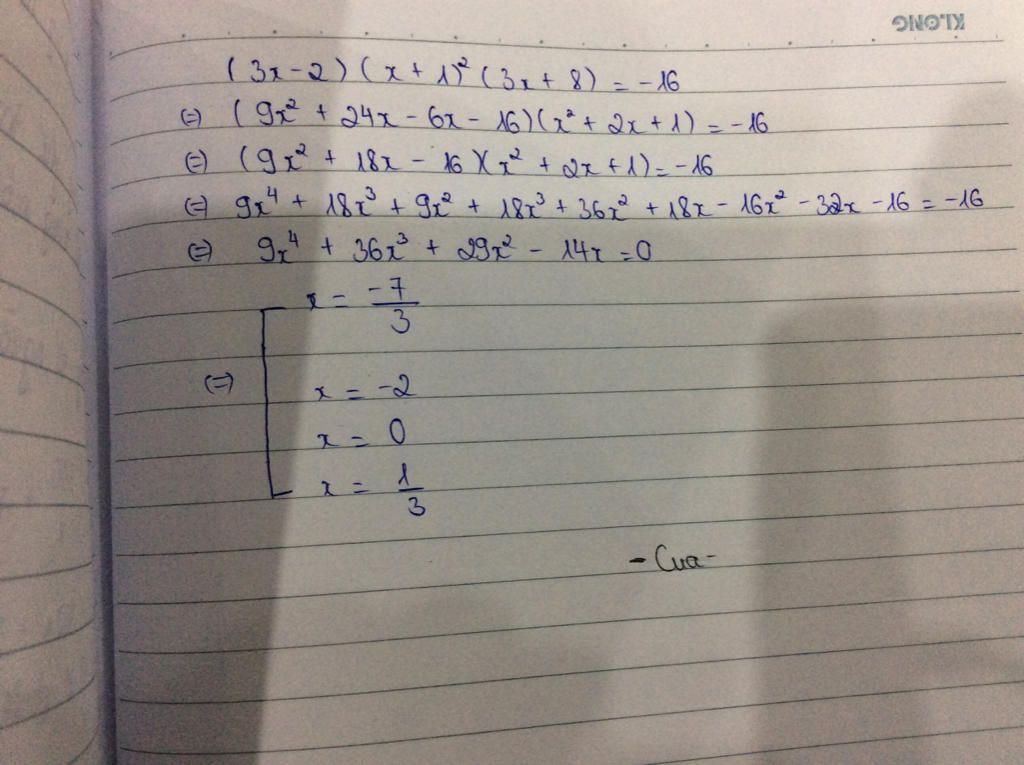 KLONG
(3x-2)(x+1)²(3x+8) = -16
(=) (9x² + 24x - 6x - 16)(x² + 2x + 1) = -16
(=) (9x² + 18x - 16)(x² + 2x + 1) = -16
(=) 9x⁴ + 18x³ + 9x² + 18x³ + 36x² + 18x - 16x² - 32x - 16 = -16
(=) 9x⁴ + 36x³ + 29x² - 14x = 0
(=) [ x = -7/3
x = -2
x = 0
x = 1/3
- Cua -